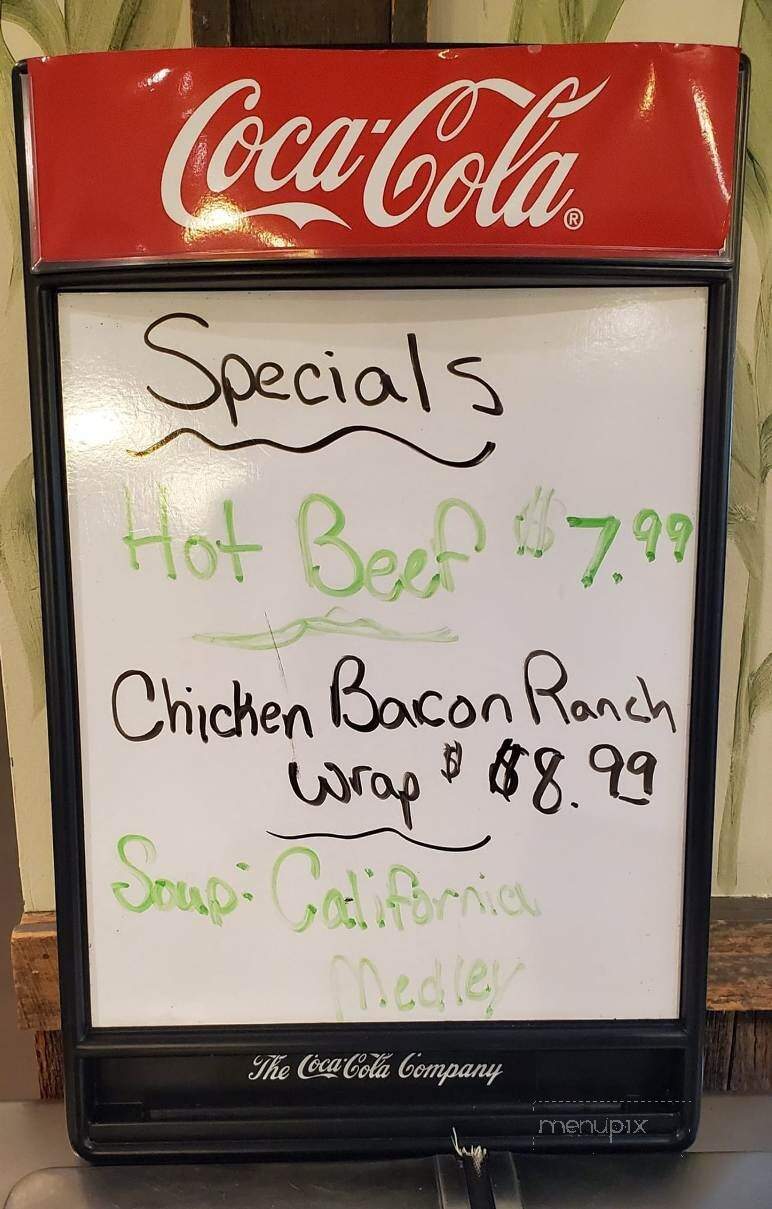 Coca-Cola®
Specials
Hot Beef $7.99
Chicken Bacon Ranch
Wrap $ $8.99
Soup: California
Medley
The Coca-Cola Company
menupix